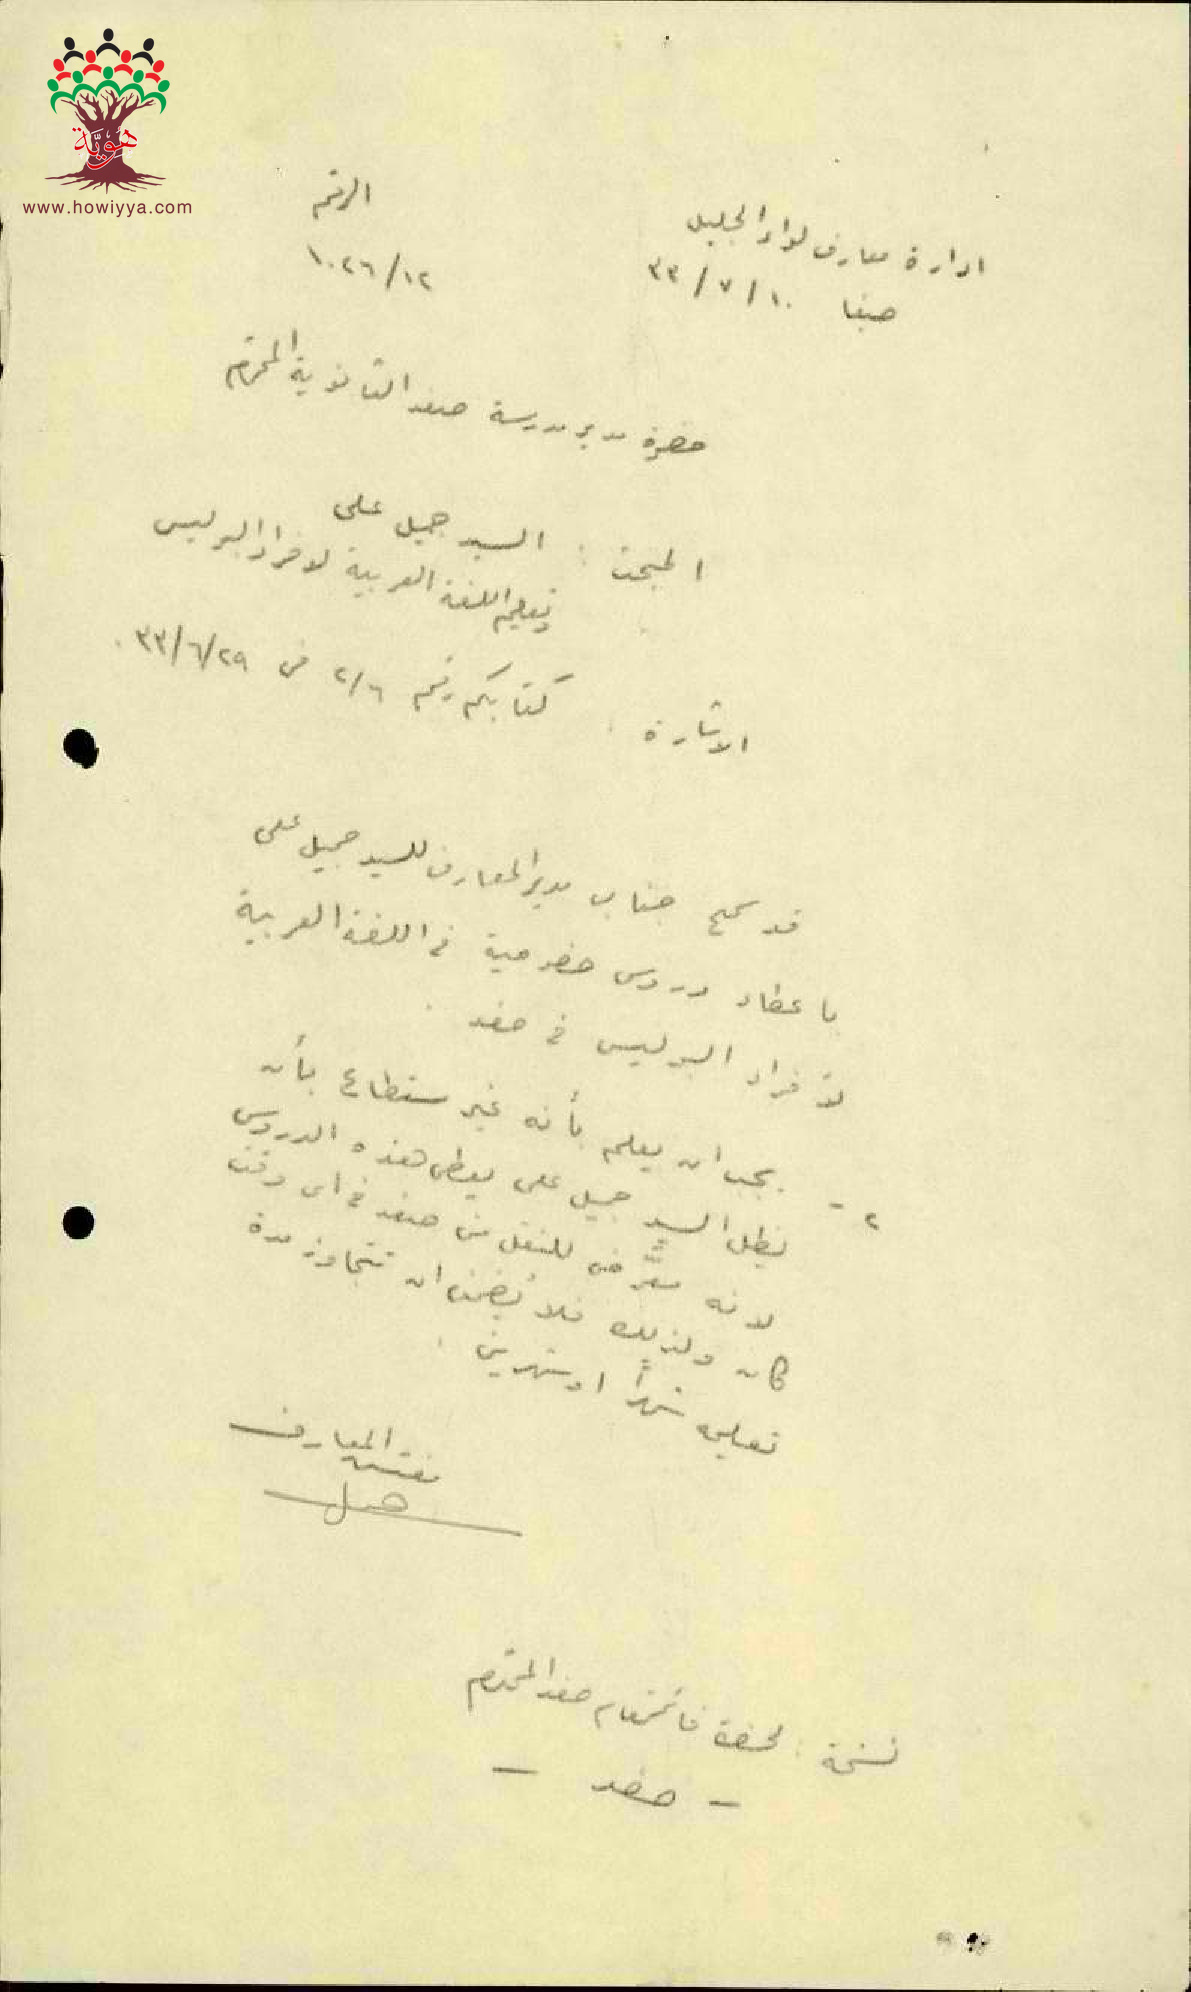 هوية
www.howiyya.com
ادارة معارف لواء الجليل
الرقم
حيفا ١٠/٧/٣٣
١٠٢٦/١٢
حضرة مدير مدرسة صفد الثانوية المحترم
المبحث : السيد جميل علي
وتعليم اللغة العربية لافراد البوليس
الاشارة : كتابكم رقم ٢/٦ في ٢٩/٦/٣٣ .
قد سمح جناب مدير المعارف للسيد جميل علي
باعطاء دروس خصوصية في اللغة العربية
لأفراد البوليس في صفد .
٢ - يجب ان يعلم بأنه غير مستطاع بأن
يظل السيد جميل علي يعطي هذه الدروس
لانه معرّض للنقل من صفد في اي وقت
كان ولذلك فلا يُضمن ان تتجاوز مدة
تعليمه شهراً او شهرين .
مفتش المعارف
نسخة : لحضرة قائمقام صفد المحترم
- صفد -